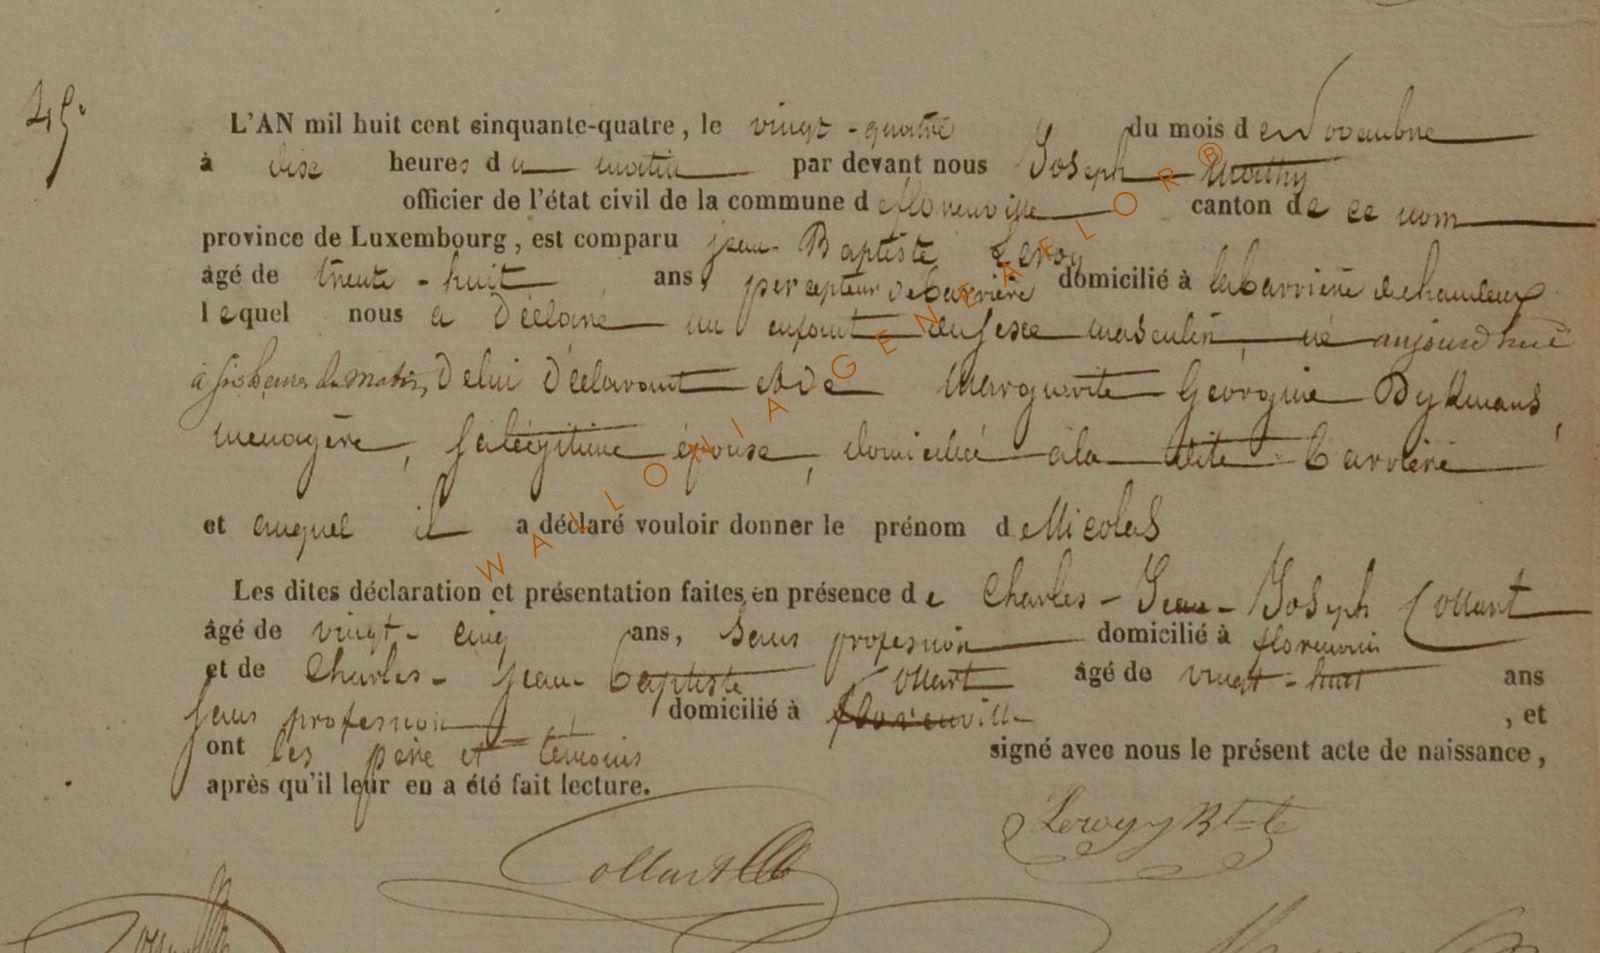 45.
L'AN mil huit cent cinquante-quatre, le vingt-quatre du mois de Novembre
à dise heures du matin par devant nous Joseph Mathy
officier de l'état civil de la commune de florenville canton de ce nom
province de Luxembourg, est comparu jean-Baptiste Leroy
âgé de trente-huit ans, percepteur de barrière domicilié à la barrière de chameleux
lequel nous a déclaré un enfant du sexe masculin, né aujourd'hui
à six heures du matin, de lui déclarant et de Marguerite Georgine Dykmans,
menagère, sa légitime épouse, domiciliée à la dite barrière
et auquel il a déclaré vouloir donner le prénom de Nicolas
Les dites déclaration et présentation faites en présence de Charles-Jean-Joseph Collart
âgé de vingt-cinq ans, sans profession domicilié à florenville
et de Charles-Jean-baptiste Collart âgé de vingt-huit ans
sans profession domicilié à florenville, et
ont les père et témoins signé avec nous le présent acte de naissance,
après qu'il leur en a été fait lecture.
Leroy Bte
Collart
WALLONIA GENEALOR®